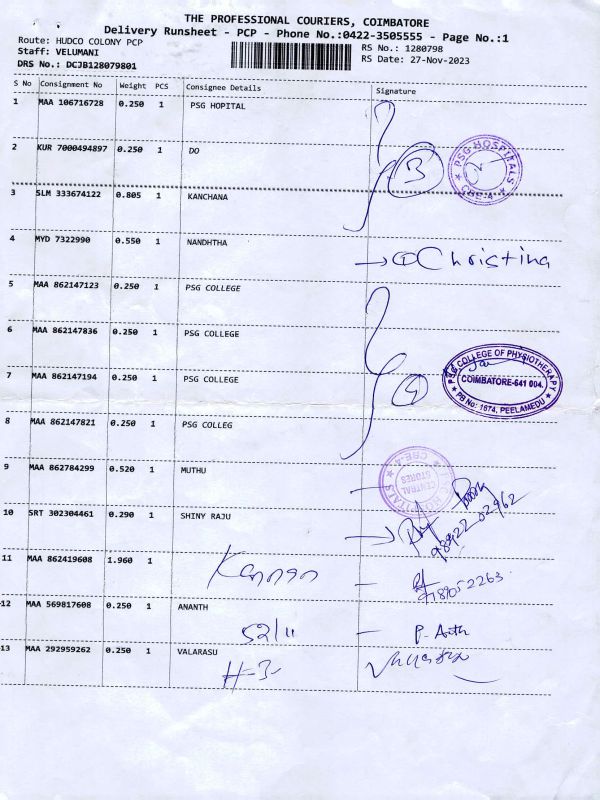 THE PROFESSIONAL COURIERS, COIMBATORE
Delivery Runsheet - PCP - Phone No.:0422-3505555 - Page No.:1
Route: HUDCO COLONY PCP
RS No.: 1280798
Staff: VELUMANI
RS Date: 27-Nov-2023
DRS No.: DCJB128079801
S No Consignment No Weight PCS Consignee Details Signature
1 MAA 106716728 0.250 1 PSG HOPITAL
2 KUR 7000494897 0.250 1 DO
3
PSG HOSPITALS
CBE-4
3 SLM 333674122 0.805 1 KANCHANA
4 MYD 7322990 0.550 1 NANDHTHA
Christina
5 MAA 862147123 0.250 1 PSG COLLEGE
6 MAA 862147836 0.250 1 PSG COLLEGE
7 MAA 862147194 0.250 1 PSG COLLEGE
4
PSG COLLEGE OF PHYSIOTHERAPY
COIMBATORE-641 004.
PB No: 1674, PEELAMEDU
8 MAA 862147821 0.250 1 PSG COLLEG
9 MAA 862784299 0.520 1 MUTHU
CENTRAL
STORES
CBE-4
10 SRT 302304461 0.290 1 SHINY RAJU
11 MAA 862419608 1.960 1
Kannan
12 MAA 569817608 0.250 1 ANANTH
52/11
13 MAA 292959262 0.250 1 VALARASU
H-3